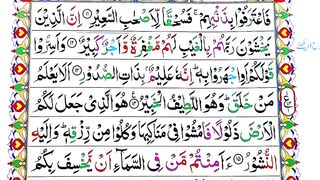 فَاعْتَرَفُوْا بِذَنْۢبِهِمْ ۚ فَسُحْقًا لِّاَصْحٰبِ السَّعِيْرِ ۝ اِنَّ الَّذِيْنَ
يَخْشَوْنَ رَبَّهُمْ بِالْغَيْبِ لَهُمْ مَّغْفِرَةٌ وَّاَجْرٌ كَبِيْرٌ ۝ وَاَسِرُّوْا
قَوْلَكُمْ اَوِ اجْهَرُوْا بِهٖ ؕ اِنَّهٗ عَلِيْمٌۢ بِذَاتِ الصُّدُوْرِ ۝ اَلَا يَعْلَمُ
مَنْ خَلَقَ ؕ وَهُوَ اللَّطِيْفُ الْخَبِيْرُ ۝ هُوَ الَّذِيْ جَعَلَ لَكُمُ
الْاَرْضَ ذَلُوْلًا فَامْشُوْا فِيْ مَنَاكِبِهَا وَكُلُوْا مِنْ رِّزْقِهٖ ؕ وَاِلَيْهِ
النُّشُوْرُ ۝ ءَاَمِنْتُمْ مَّنْ فِي السَّمَآءِ اَنْ يَّخْسِفَ بِكُمُ